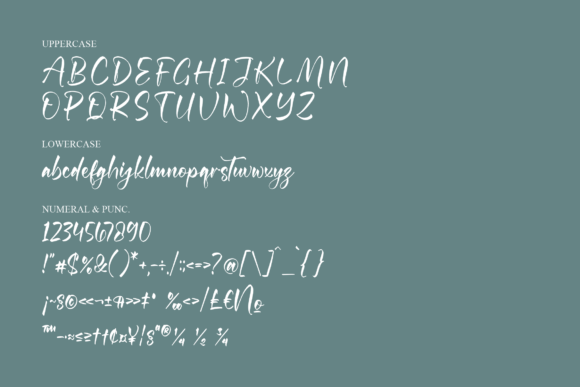 UPPERCASE
ABCDEFGHIJKLMN
OPQRSTUVWXYZ
LOWERCASE
abcdefghijklmnopqrstuvwxyz
NUMERAL & PUNC.
1234567890
!"#$%&()*+,-÷./:;<=>?@[\]^_`{}
¡~§©««¬±¶»»‡• ‰<>/₤€№
™—·≈≤≥††¢¤¥¦§ª®¼ ½ ¾